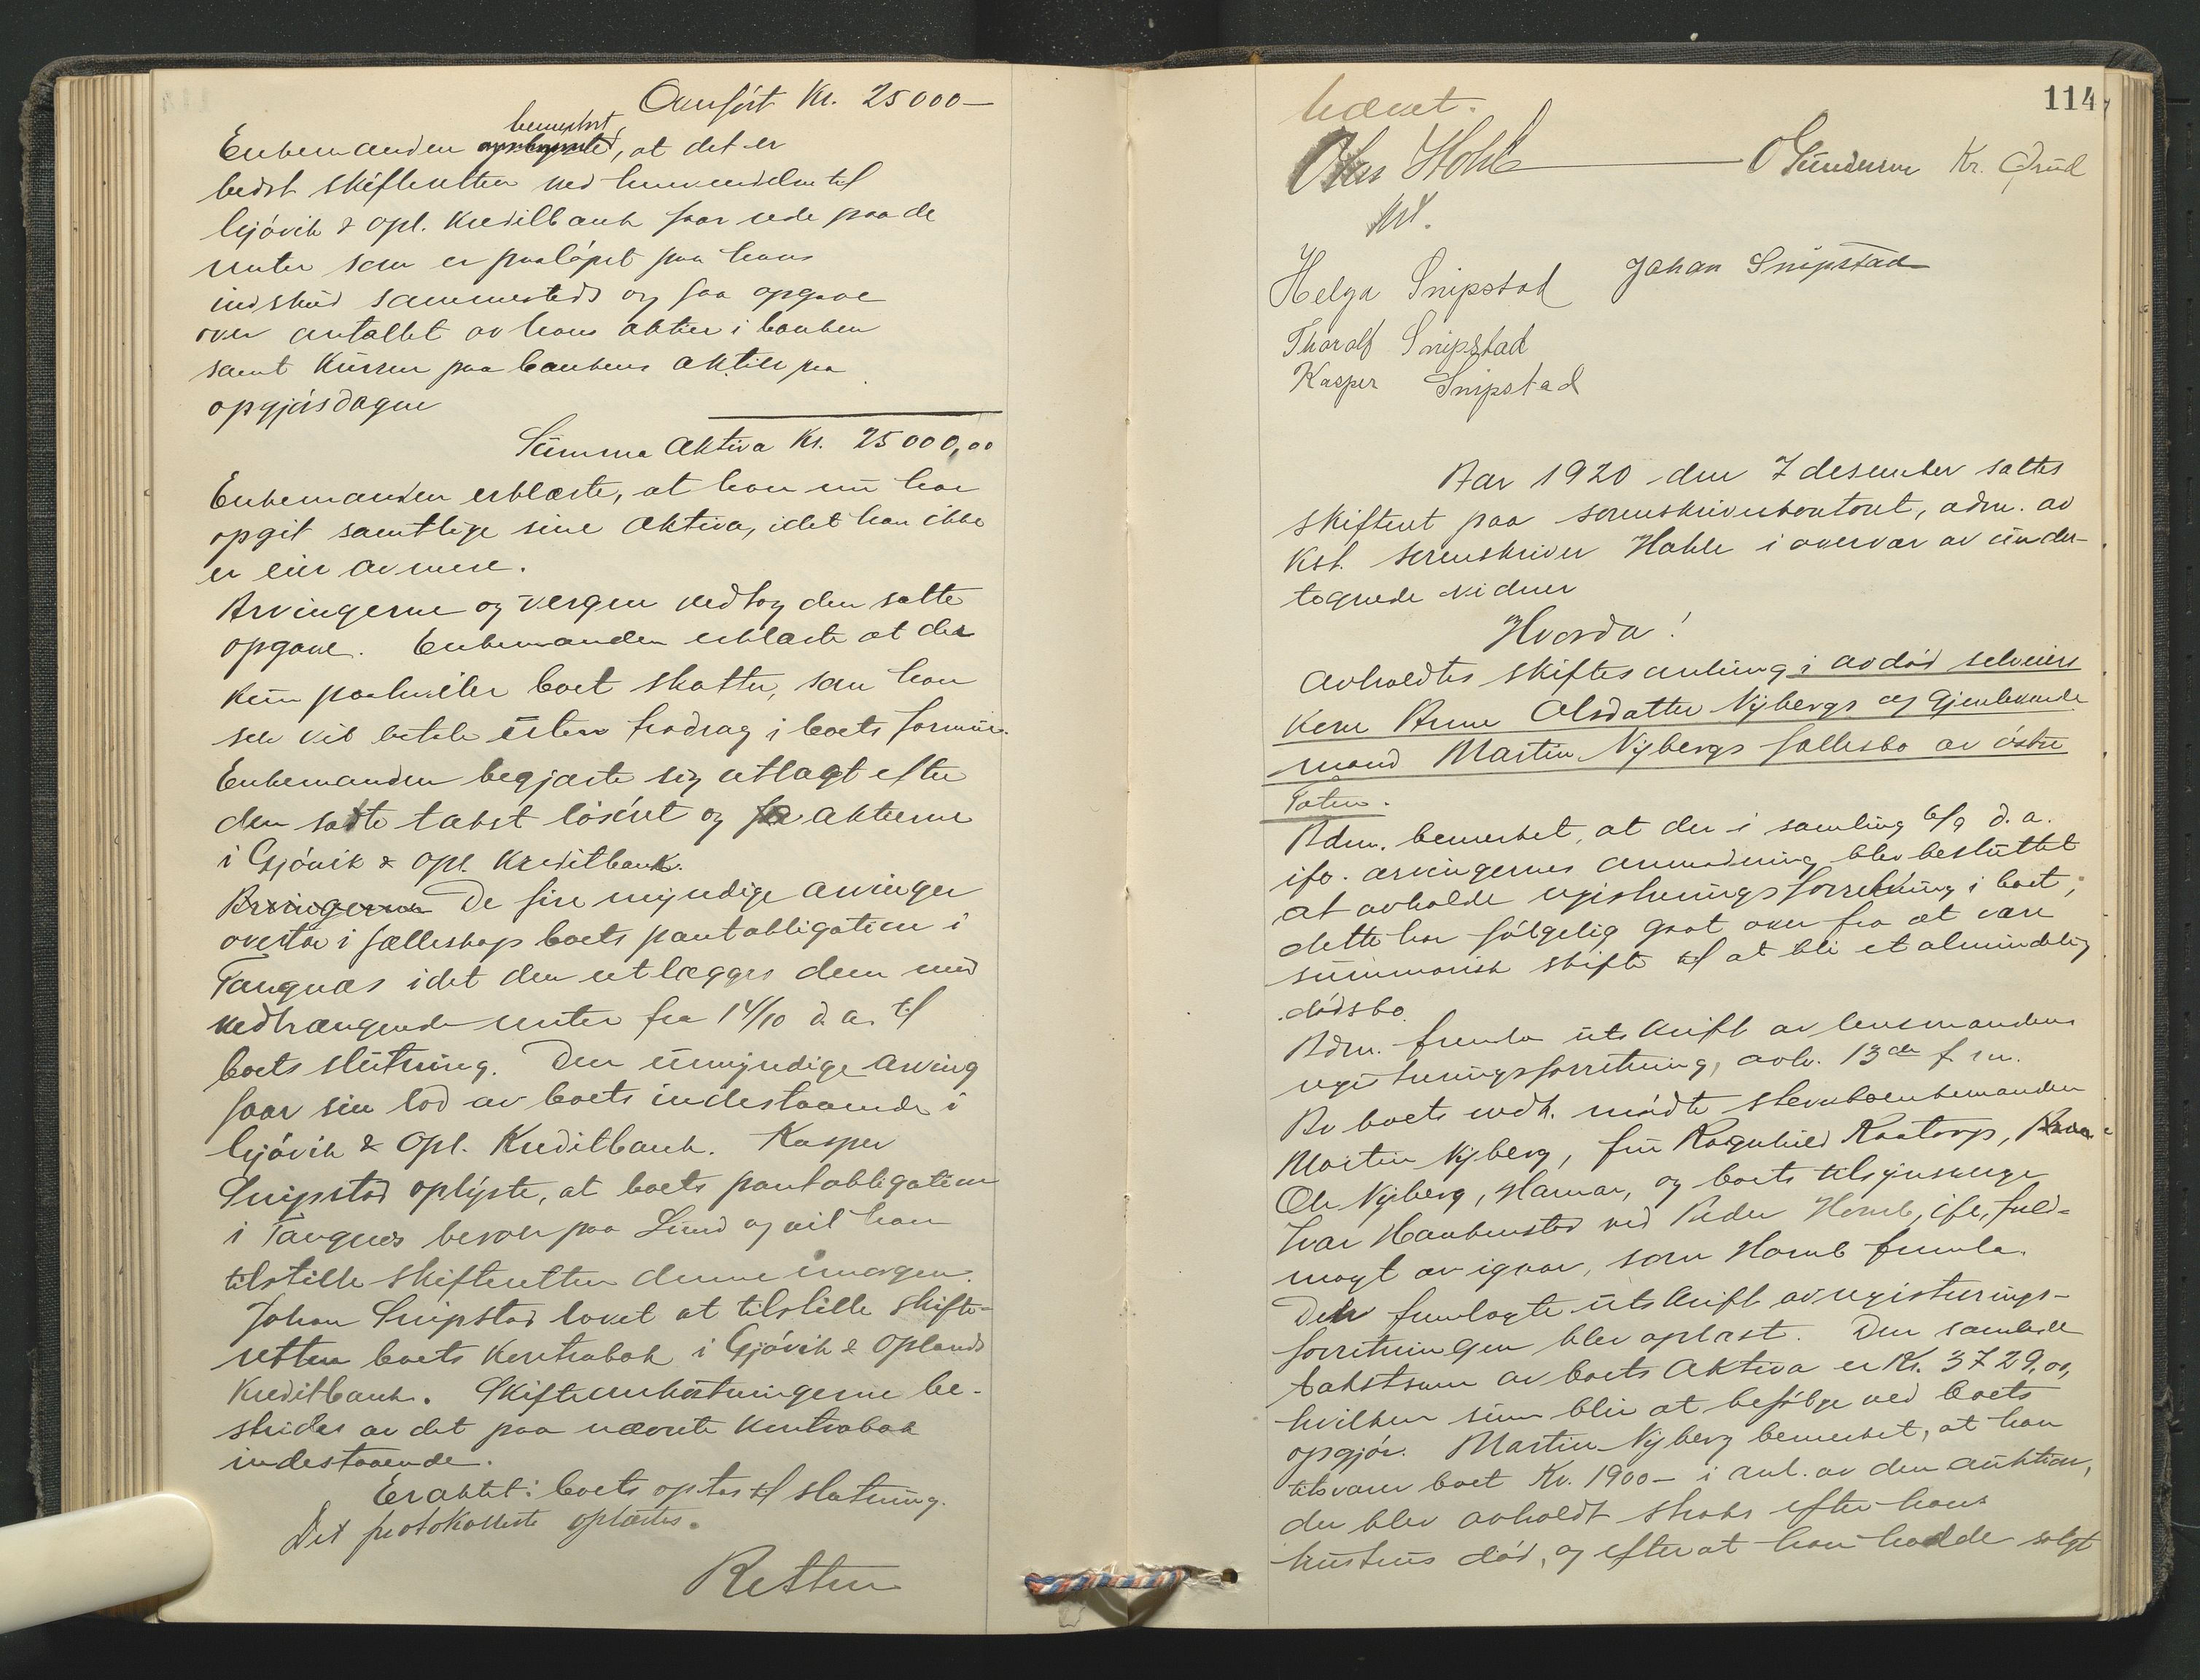 Overført Kr. 25000—
bemerket
Enkemanden, at det er
bedst skifteretten ved henvendelse til
Gjøvik & Opl. Kreditbank faar rede paa de
renter som er paaløpet paa hans
indskud sammesteds og faa opgave
over antallet av hans aktier i banken
samt kursen paa bankens aktier paa
opgjørsdagen
Summa Aktiva Kr. 25000,00
Enkemanden erklærte, at han nu har
opgit samtlige sine Aktiva, idet han ikke
er eier av mere.
Arvingerne og vergen vedtog den satte
opgave. Enkemanden erklærte at der
kun paahviler boet skatter, som han
selv vil betale uten fradrag i boets formue.
Enkemanden begjærte sig utlagt efter
den satte takst løsøret og aktierne
i Gjøvik & Opl. Kreditbank.
Arvingerne De fire myndige arvinger
overtar i fælleskap boets pantobligation i
Tangnæs idet den utlægges dem med
vedhængende renter fra 14/10 d. a. til
boets slutning. Den umyndige arving
faar sin lod av boets indestaaende i
Gjøvik & Opl. Kreditbank. Kasper
Snipstad oplyste, at boets pantobligation
i Tangnes beror paa Lund og vil han
tilstille skifteretten denne imorgen.
Johan Snipstad lovet at tilstille skifte-
retten boets Kontrabok i Gjøvik & Oplands
Kreditbank. Skifteomkostningerne be-
strides av det paa nævnte Kontrabok
indestaaende.
Eraktet: boets optas til slutning.
Det protokollerte oplæstes.
Retten
114
hævet.
Hohle O Gundersen Kr. Qrud
Helga Snipstad Johan Snipstad
Tharalf Snipstad
Kasper Snipstad
Aar 1920 den 7 desember sattes
skifteret paa sorenskriverkontoret, adm. av
Kst. sorenskriver Hohle i overvær av under-
tegnede vidner
Hvorda!
Avholdtes skiftesamling i avdød selveiers
kone Anne Olsdatter Nybergs og gjenlevende
mand Martin Nybergs fællesbo av østre
Toten.
Adm. bemerket, at der i samling 6/9 d. a.
ifø. arvingernes anmodning blev besluttet
at avholde registreringsforretning i boet;
dette har følgelig gaat over fra at være
summarisk skifte til at bli et almindelig
dødsbo.
Adm. fremla utskrift av lensmandens
registreringsforretning, avh. 13de f. m.
Av boets vedk. mødte stervboenkemanden
Martin Nyberg, fru Ragnhild Raatorp,
Ole Nyberg, Hamar, og boets tilsynsverge
Ivar Haakenstad ved Peder Homb, ifø. fuld-
magt av igaar, som Homb fremla.
Den fremlagte utskrift av registrerings-
forretningen blev oplæst. Den samlede
takstsum av boets Aktiva er Kr. 3729,00,
hvilken sum blir at befølge ved boets
opgjør. Martin Nyberg bemerket, at han
tilsvarer boet Kr. 1900— i anl. av den auktion,
der blev avholdt straks efter hans
hustrus død, og efterat han hadde solgt